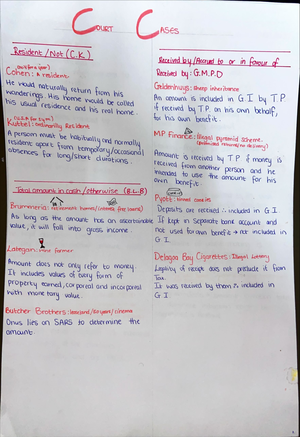 COURT CASES
Resident / Not (C.K.)
Cohen: A resident
He would naturally return from his
wanderings. His home would be called
his usual residence and his real home.
Kuttel: Ordinarily Resident
A person must be habitually and normally
resident apart from temporary/occasional
absences for long/short durations.
Total amount in cash/otherwise (B.L.B)
Brummeria: retirement homes/interest free loans
As long as the amount has an ascertainable
value, it will fall into gross income.
Lategan: wine farmer
Amount does not only refer to money.
It includes values of every form of
property earned, corporeal and incorporeal
with monetary value.
Butcher Brothers: leaseland/
Onus lies on SARS to determine the
amount
Received by/Accrued to or in favour of
Received by: G.M.P.D
Geldenhuys: sheep inheritance
An amount is included in G.I by T.P
if received by T.P. on his own behalf,
for his own benefit.
MP Finance: illegal pyramid scheme.
Amount is received by T.P if money is
received from another person and he
intended to use the amount for his
own benefit.
Pyott: tinned cookies
Deposits are received ∴ included in G.I
If kept in separate bank account and
not used for own benefit → not included in
G.I.
Delagoa Bay Cigarettes: Illegal Lottery
Legality of receipt does not preclude it from
Tax.
It was received by them ∴ included in
G.I